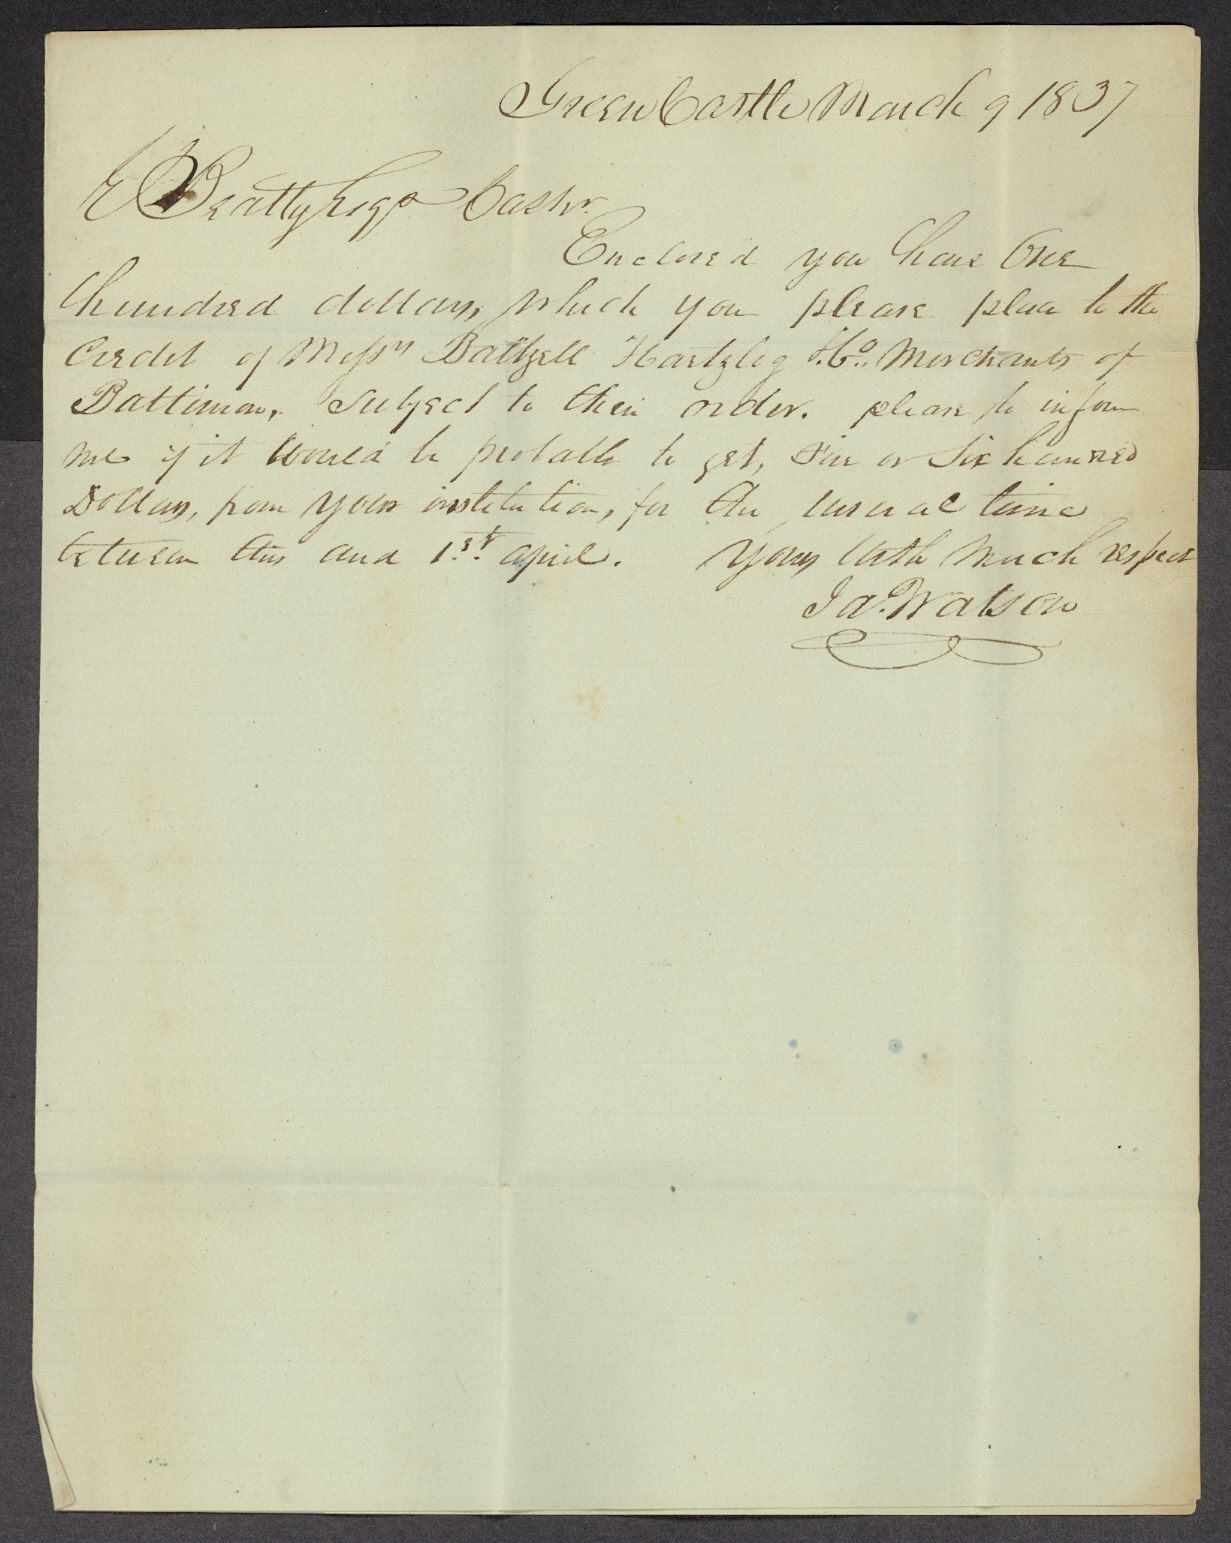 Green Castle March 9 1837
E Beatty Esqr Cashr.
Enclosed you have One
hundred dollars, which you please place to the
Credit of Messrs Baltzell & Co. Merchants of
Baltimore, Subject to their order. please to inform
me if it would be probable to get, five or Six hundred
Dollars, from your institution, for the usual time
between this and 1st april. Yours With Much respect
Jas. Watson